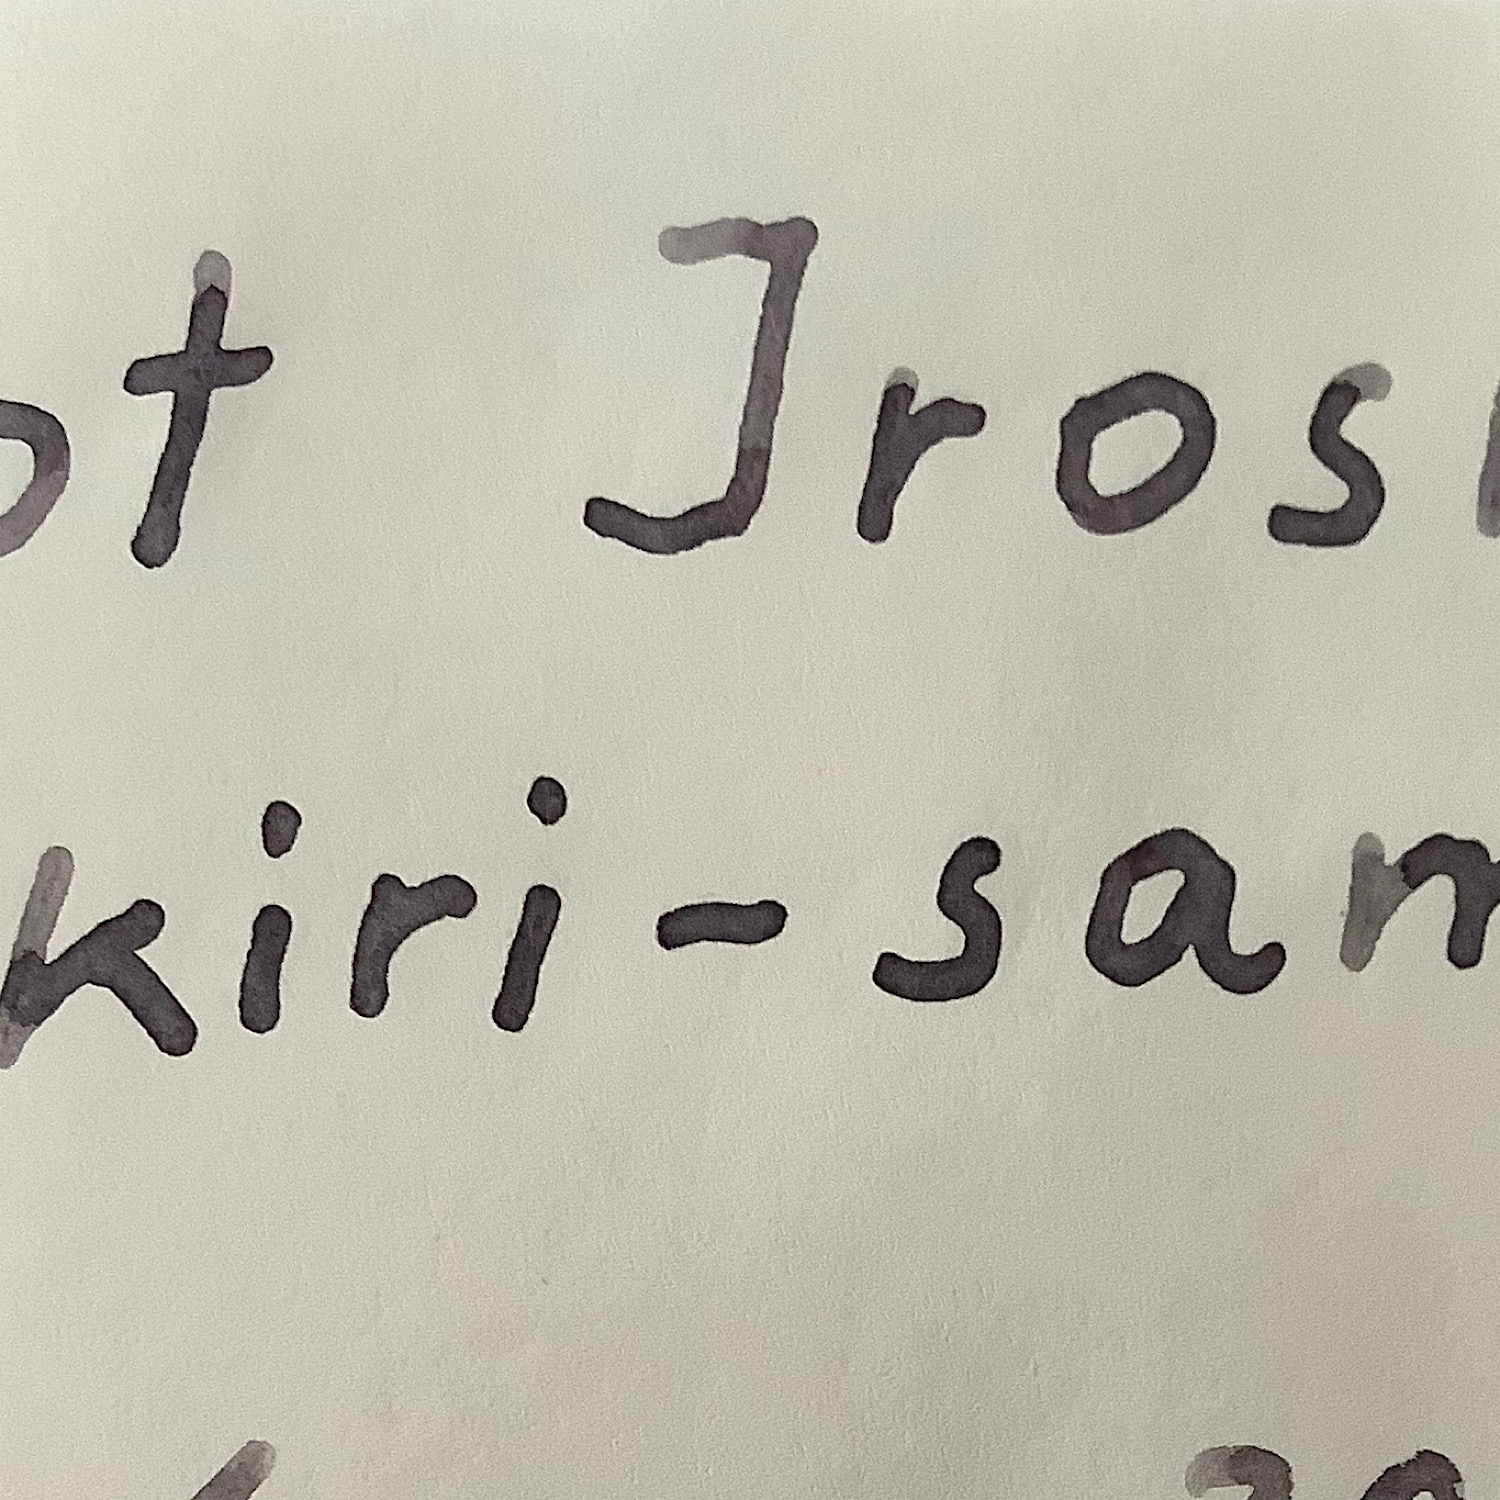 ot Jrosh
kiri-sam